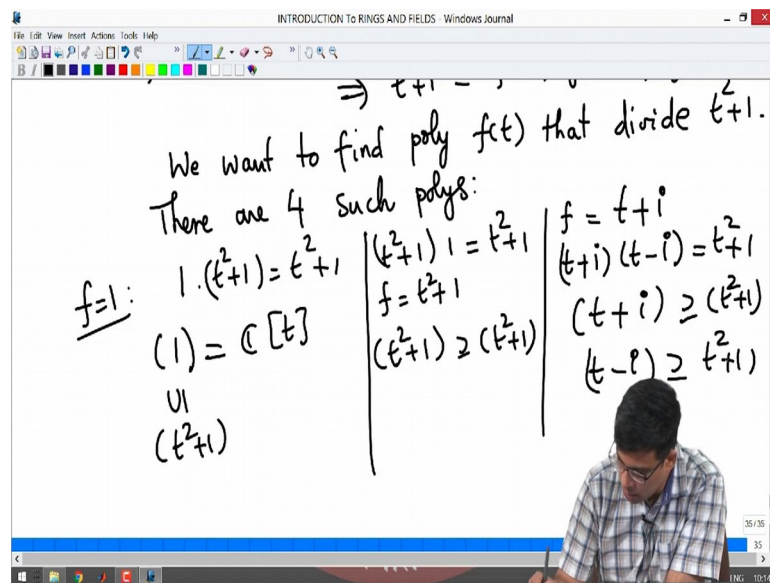 INTRODUCTION To RINGS AND FIELDS - Windows Journal
File Edit View Insert Actions Tools Help
⇒ t²+1 =
We want to find poly f(t) that divide t²+1.
There are 4 such polys:
f=1: 1.(t²+1)=t²+1
(1) = ℂ[t]
∪I
(t²+1)
(t²+1) 1 = t²+1
f=t²+1
(t²+1) ⊇ (t²+1)
f = t+i
(t+i)(t-i)=t²+1
(t+i) ⊇ (t²+1)
(t-i) ⊇ t²+1)
35/35
35
ENG